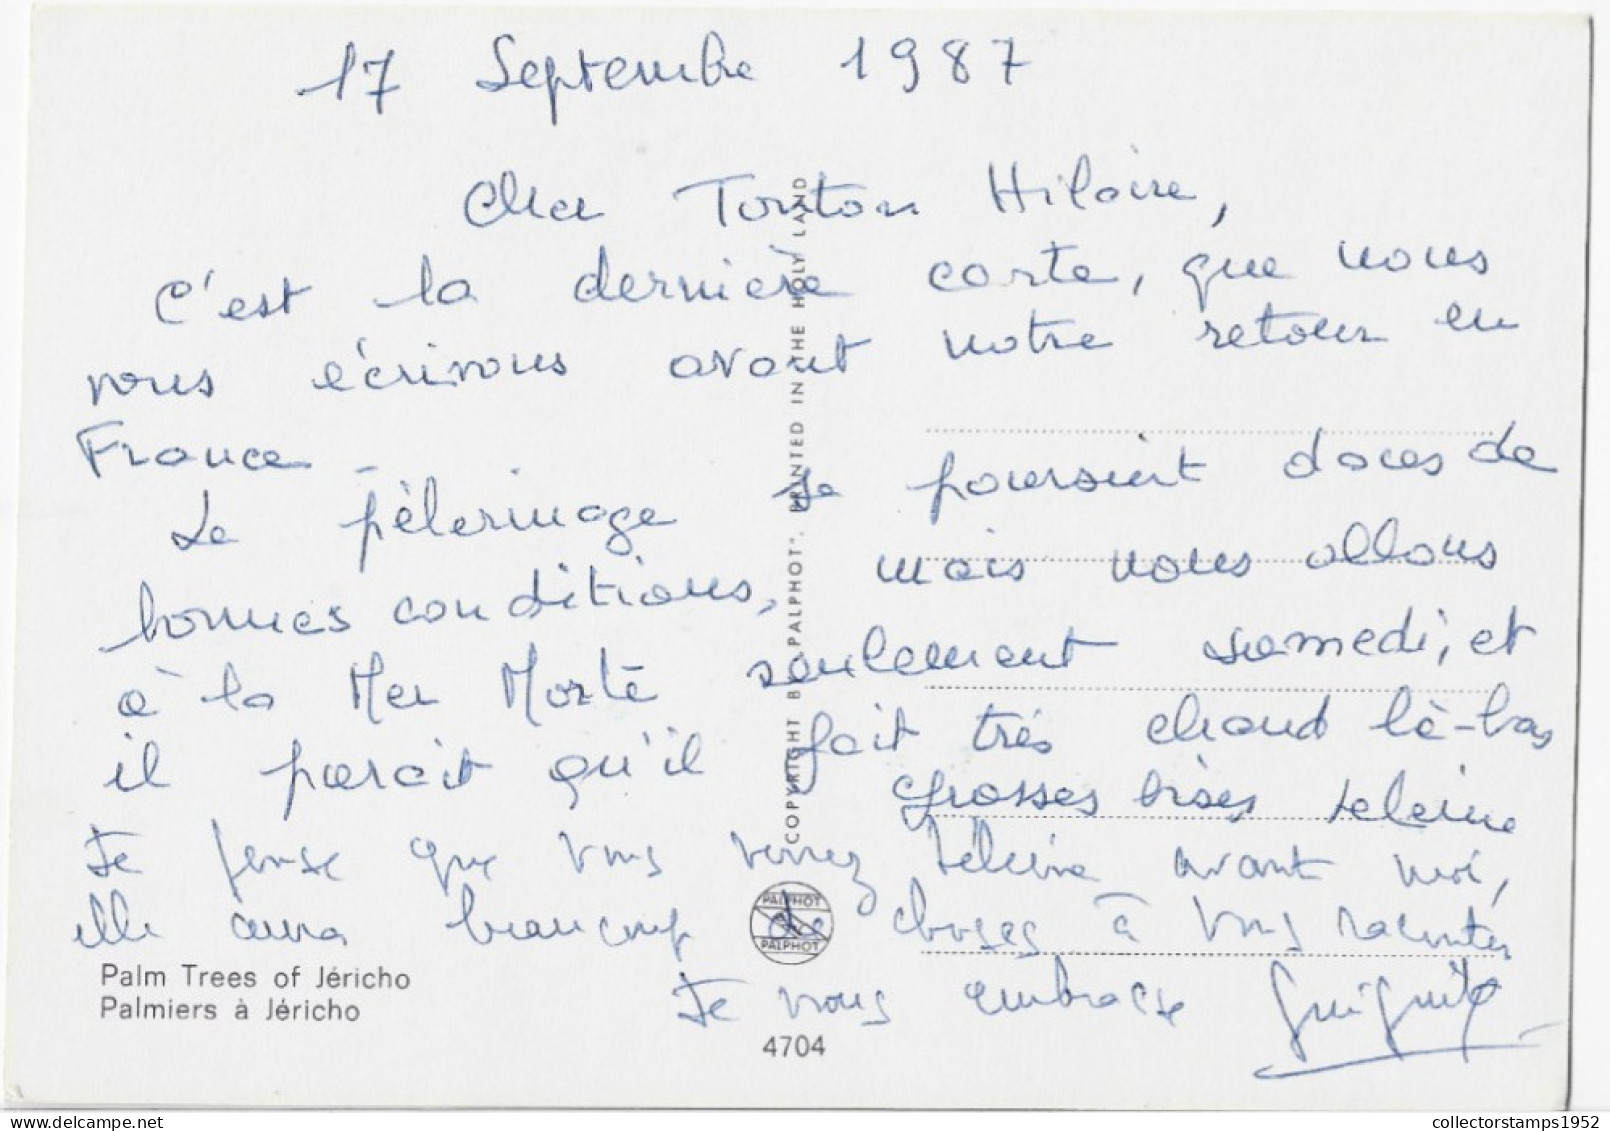 17 Septembre 1987
Cher Tonton Hilaire,
C'est la dernière carte, que nous
vous écrivons avant notre retour en
France.
Le pèlerinage se poursuit dans de
bonnes conditions, mais nous allons
à la Mer Morte seulement samedi, et
il parait qu'il fait très chaud là-bas
Grosses bises
Je pense que vous verrez avant moi,
elle aura beaucoup de choses à vous raconter
Je vous embrasse
Palm Trees of Jéricho
Palmiers à Jéricho
4704
COPYRIGHT BY "PALPHOT". PRINTED IN THE HOLY LAND
PALPHOT
PALPHOT
collectorstamps1952